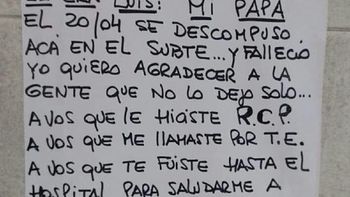 LUIS: MI PAPÁ
EL 20/04 SE DESCOMPUSO
ACÁ EN EL SUBTE... Y FALLECIÓ
YO QUIERO AGRADECER A LA
GENTE QUE NO LO DEJO SOLO...
A VOS QUE LE HICISTE R.C.P.
A VOS QUE ME LLAMASTE POR T.E.
A VOS QUE TE FUISTE HASTA EL
HOSPITAL PARA SALUDARME A